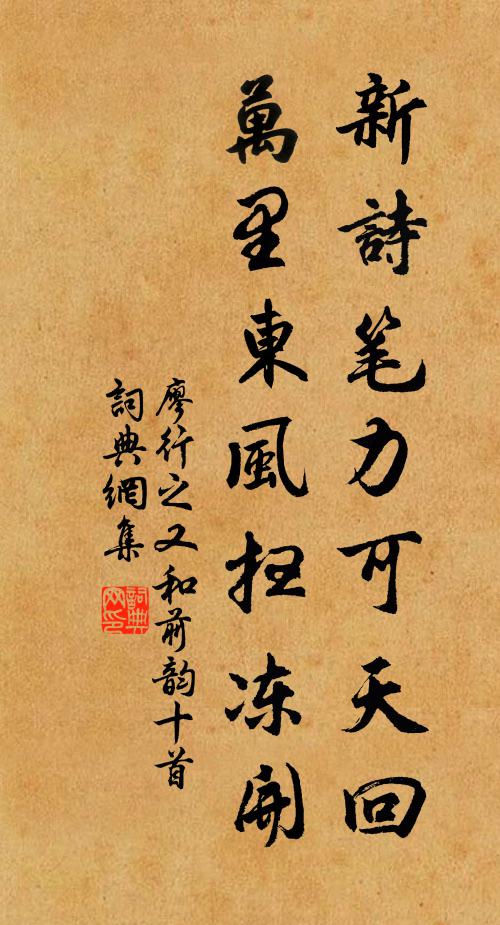 新詩笔力可天回
萬里東風扫冻開
廖行之又和前韵十首
詞典網集
詞典网印